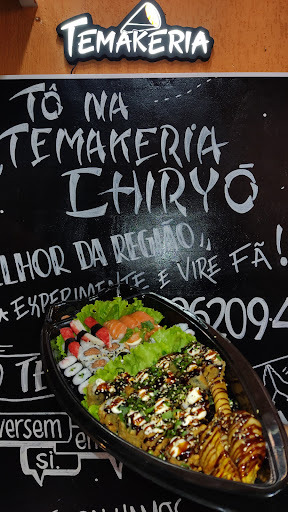 TEMAKERIA
TÔ NA
TEMAKERIA
CHIRYÔ
ELHOR DA REGIÃO
EXPERIMENTE E VIRE FÃ!
86209-4
versem
en
si.